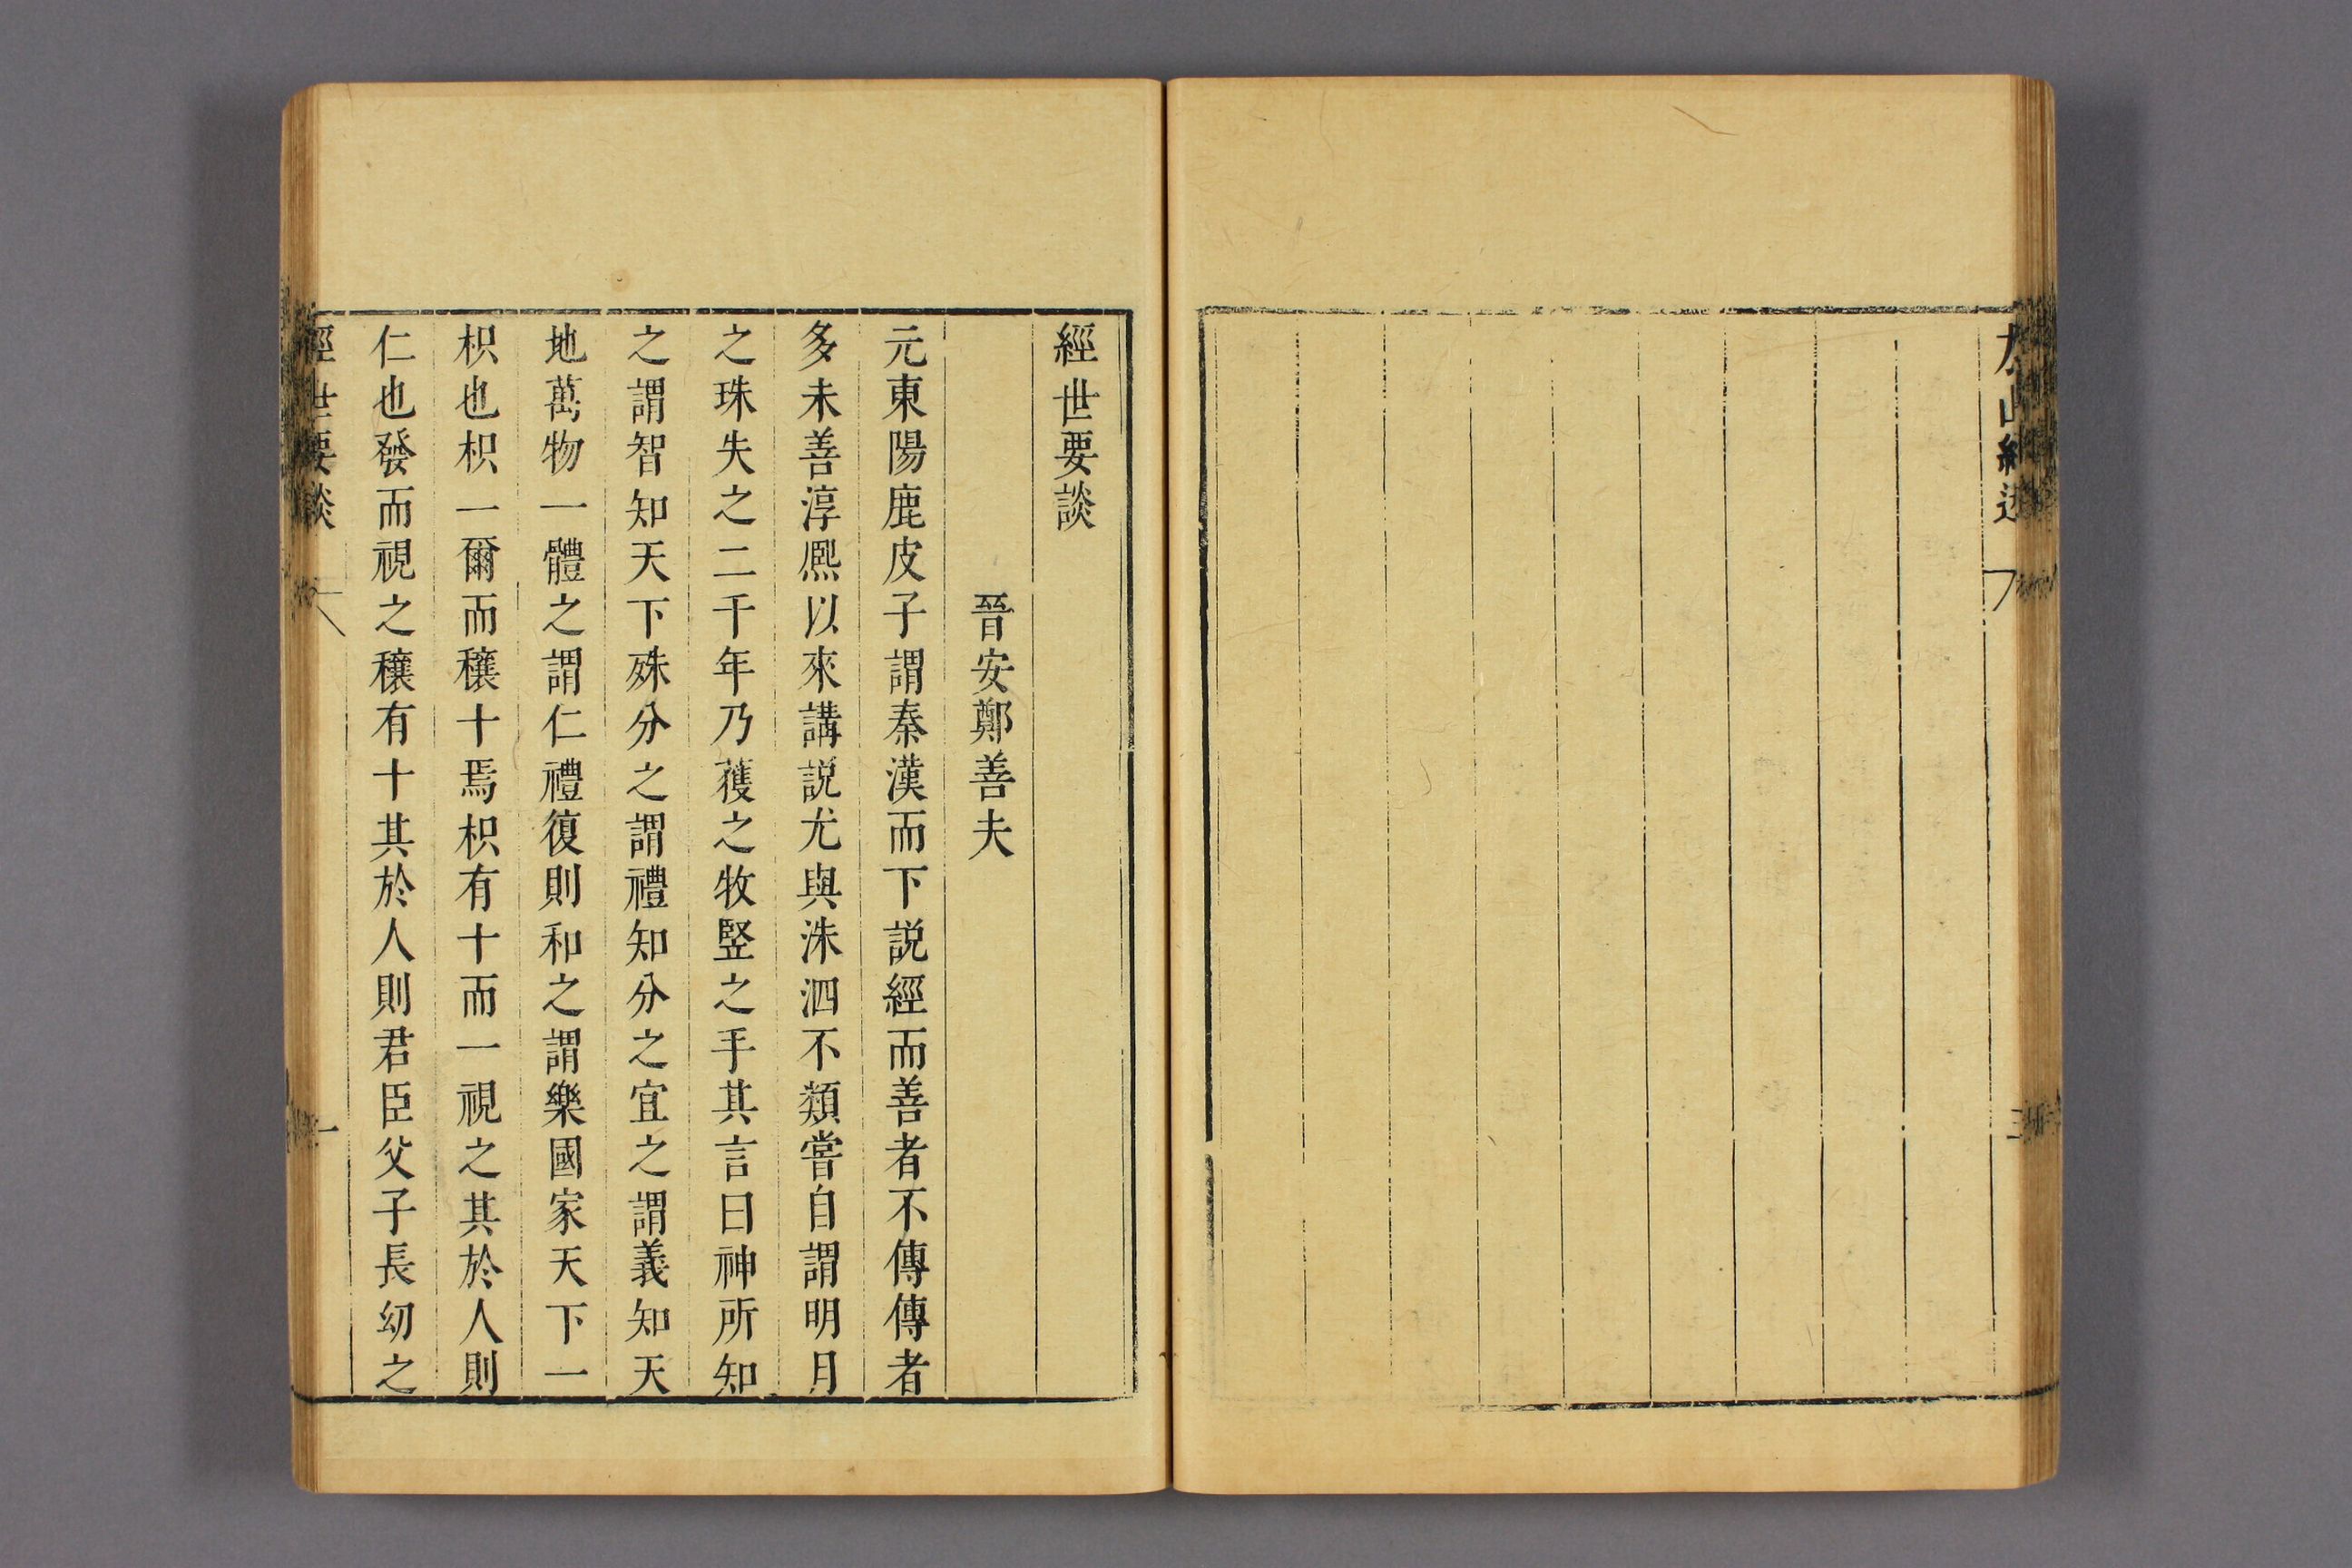 經世要談
晉安鄭善夫
元東陽鹿皮子謂秦漢而下説經而善者不傳傳者
多未善淳熈以來講説尤與洙泗不類嘗自謂明月
之珠失之二千年乃獲之牧竪之手其言曰神所知
之謂智知天下殊分之謂禮知分之宜之謂義知天
地萬物一體之謂仁禮復則和之謂樂國家天下一
枳也枳一爾而穰十焉枳有十而一視之其於人則
仁也發而視之穰有十其於人則君臣父子長幼之
經世要談
一